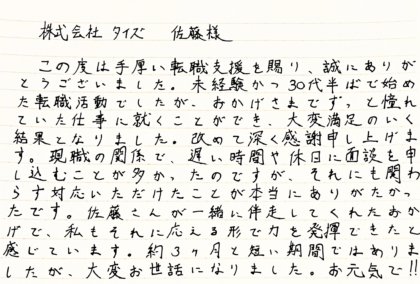 株式会社 タイズ 佐藤様
この度は手厚い転職支援を賜り、誠にありが
とうございました。未経験かつ30代半ばで始め
た転職活動でしたが、おかげさまでずっと憧れ
ていた仕事に就くことができ、大変満足のいく
結果となりました。改めて深く感謝申し上げま
す。現職の関係で、遅い時間や休日に面談を申
し込むことが多かったのですが、それにも関わ
らず対応いただけたことが本当にありがたかっ
たです。佐藤さんが一緒に伴走してくれたおか
げで、私もそれに応える形で力を発揮できたと
感じています。約3ヶ月と短い期間ではありま
したが、大変お世話になりました。お元気で!!